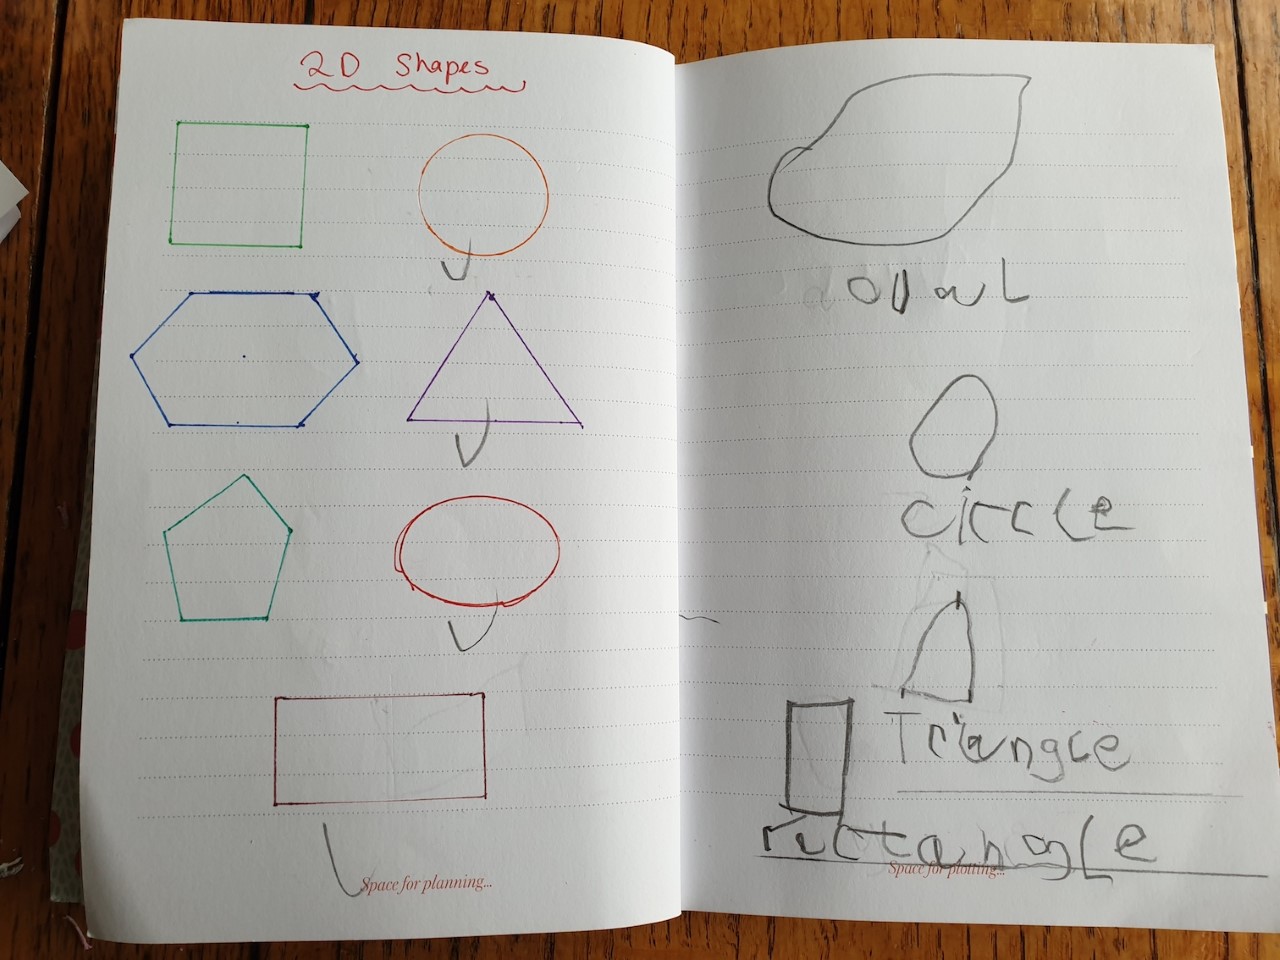 2D Shapes
Space for planning...
circle
Triangle
rectangle
Space for plotting...